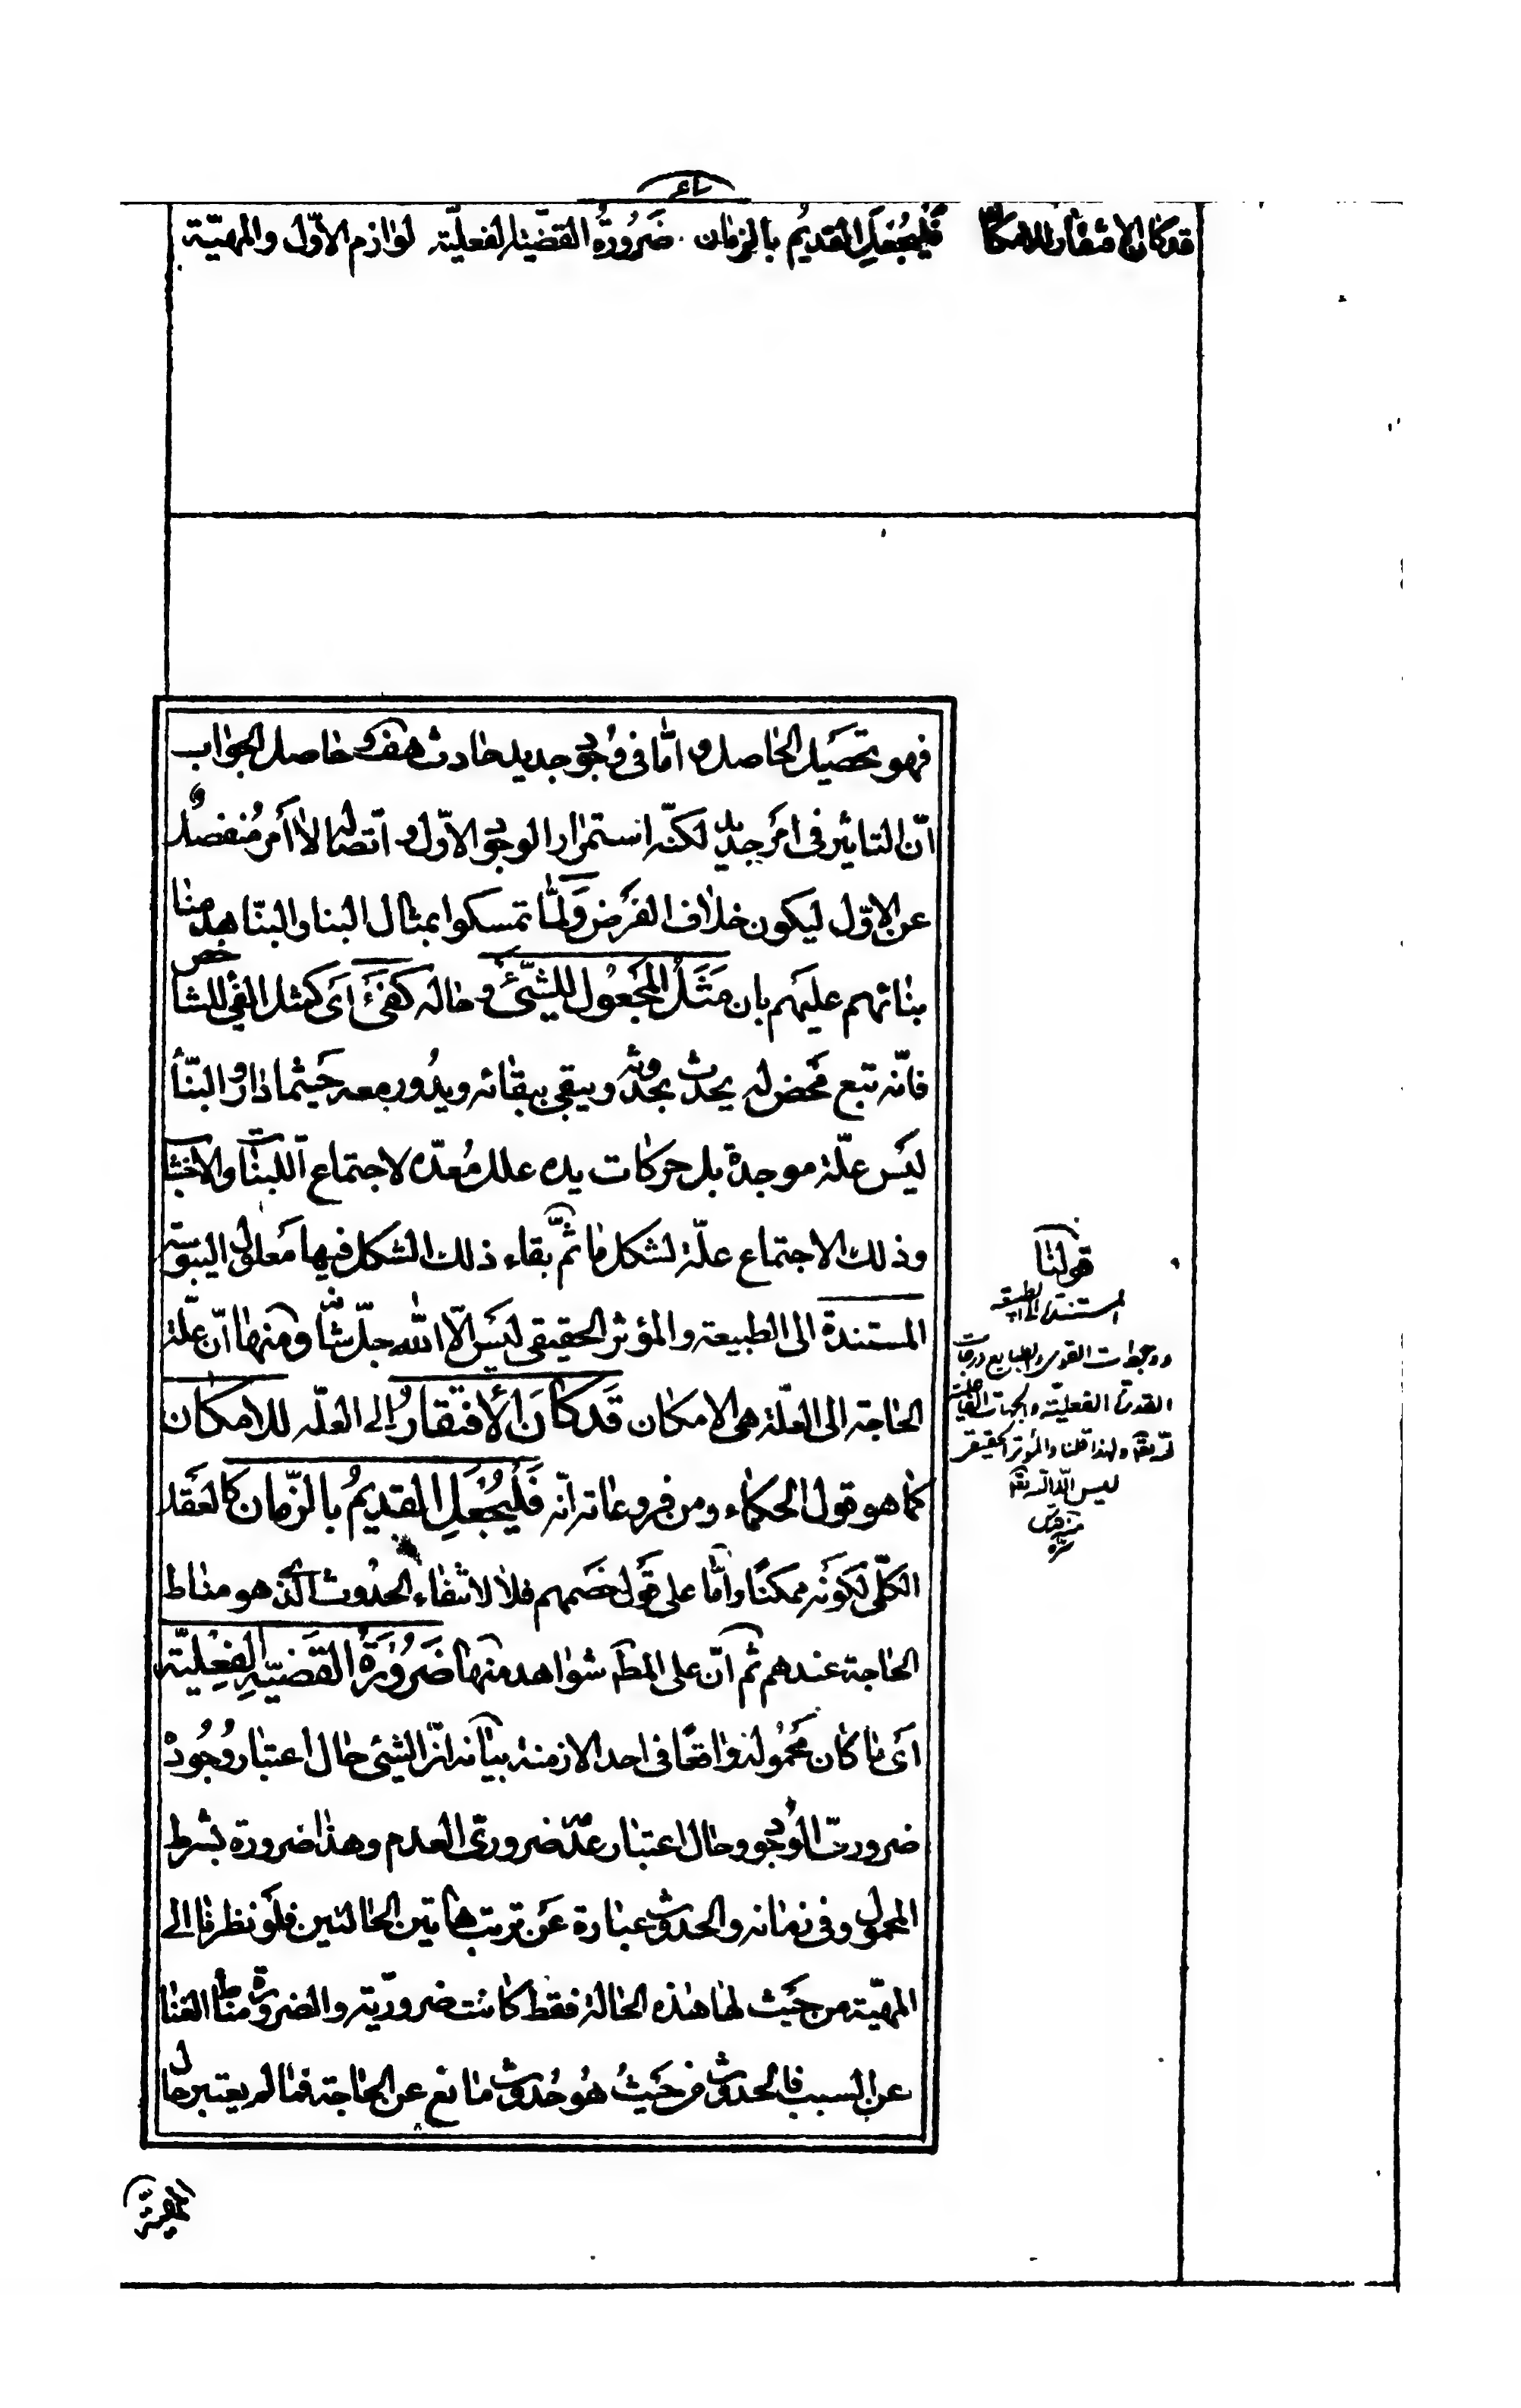 قد كان الافتقار للامكان فليجعل القديم بالزمان ضرورة القضية الفعلية لوازم الاول والمهية
فهو تحصيل الحاصل واما في وجود جديد حادث هف وحاصل الجواب
انّ التاثير في امر جديد لكنّه استمرار الوجود الاوّل واتصاله لا امر منفصل
عن الاوّل ليكون خلاف الفرض ولمّا تمسكوا بمثال البنا والبنّا هدمنا
بنائهم عليهم بان مَثَل المَجعُول للشّئ وحاله كفئ اى كمثل الفئ للشاخص
فانّه تبع محض له يحدث بحدوثه ويبقى ببقائه ويدور معه حيثما دار والبنّاء
ليس علّة موجدة بل حركات يده علل مُعدّه لاجتماع اللبنات والاخشاب
وذلك الاجتماع علّة لشكل ما ثمّ بقاء ذلك الشكل فيها معلول اليبوسة
المستندة الى الطبيعة والمؤثر الحقيقى ليس الّا الله جلّ شانه ومنها انّ علّة
الحاجة الى العلّة هى الامكان قد كانَ الأفتقارُ الى العلّه للامكان
كما هو قول الحكماء ومن فروعاته انّه فَليُجعَلِ القديمُ بالزّمان كالعقل
الكلّى لكونه ممكنًا وامّا على قول خصمهم فلا لانتفاء الحدوث الذى هو مناط
الحاجة عندهم ثم انّ على المط شواهد منها ضَرُورَةُ القَضيّةِ الفِعْلِيّة
اى ما كان محمُولها واقعًا فى احد الازمنة بيانه انّ الشئ حال اعتبار وُجُوده
ضرورىّ الوجود وحال اعتبار عدمه ضرورىّ العدم وهذا ضرورة بشرط
المحمول وفى زمانه والحدوث عبارة عن ترتب هاتين الحالتين فلو نظرنا الى
المهيّة من حيث لها هذه الحالة فقط كانت ضروريّة والضرورة مناط الغنا
عن السبب فالحدوث من حَيثُ هُو حُدوث مانع عن الحاجة فما لم يعتبر حال
المهيّة
قولنا
المستندة الى الطبيعه
ووجودات القوى والطبايع درجات
القدرة الفعليّة والجهات الفاعلية
لله تعالى ولهذا قلنا والمؤثر الحقيقى
ليس الّا الله تعالى
منه قدس
سره